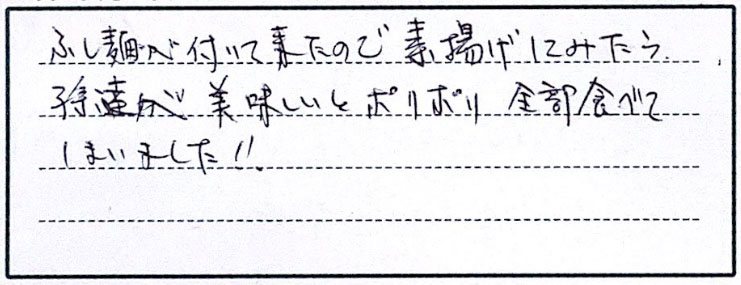 ふし麺が付いて来たので素揚げにみたら
孫達が美味しいとポリポリ全部食べて
しまいました!!